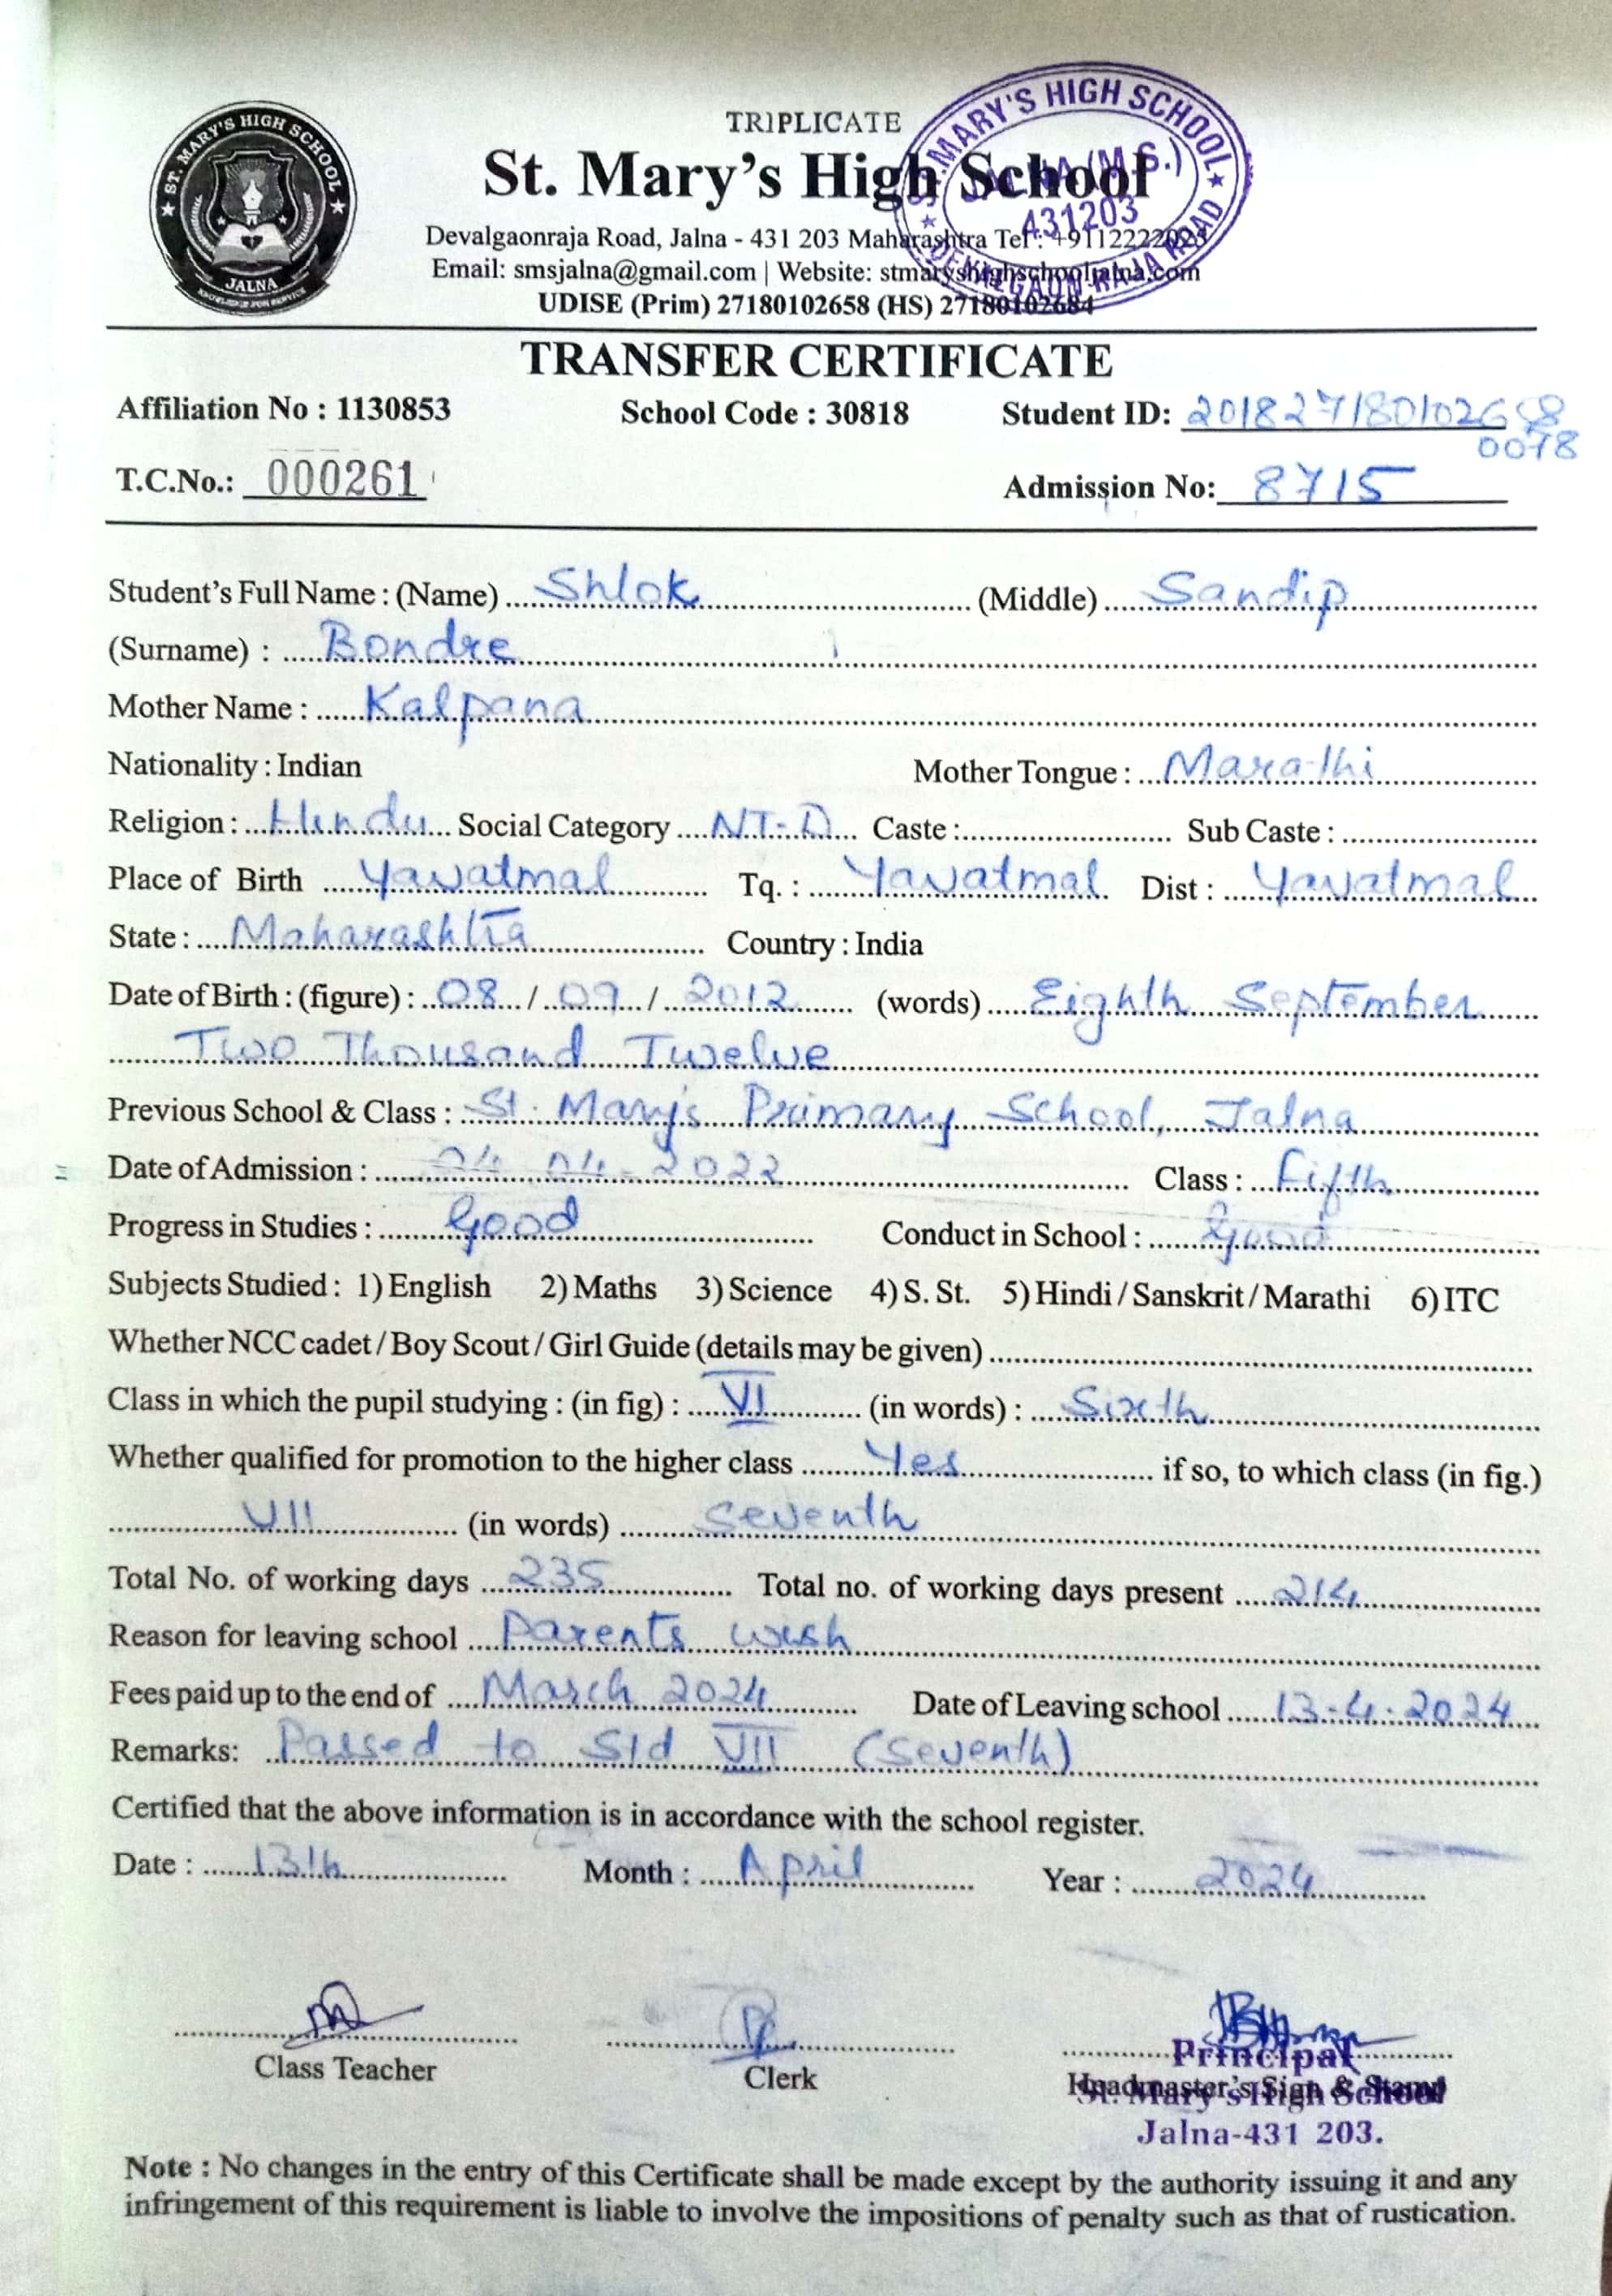 ST. MARY'S HIGH SCHOOL
JALNA
KNOWLEDGE FOR SERVICE
TRIPLICATE
St. Mary's High School
ST. MARY'S HIGH SCHOOL
JALNA (M.S.)
431203
DEVALGAON RAJA ROAD
Devalgaonraja Road, Jalna - 431 203 Maharashtra Tel :
Email: smsjalna@gmail.com | Website: stmaryshighschooljalna.com
UDISE (Prim) 27180102658 (HS) 27180102684
TRANSFER CERTIFICATE
Affiliation No : 1130853 School Code : 30818 Student ID:
0078
T.C.No.: 000261 Admission No: 8715
Student's Full Name : (Name) Shlok (Middle) Sandip
(Surname) : Bondre
Mother Name : Kalpana
Nationality : Indian Mother Tongue : Marathi
Religion : Hindu Social Category NT-D Caste : Sub Caste :
Place of Birth Yavatmal Tq. : Yavatmal Dist : Yavatmal
State : Maharashtra Country : India
Date of Birth : (figure) : 08 / 09 / 2012 (words) Eighth September
Two Thousand Twelve
Previous School & Class : St. Mary's Primary School, Jalna
Date of Admission : 04-04-2022 Class : Fifth
Progress in Studies : Good Conduct in School : Good
Subjects Studied : 1) English 2) Maths 3) Science 4) S. St. 5) Hindi / Sanskrit / Marathi 6) ITC
Whether NCC cadet / Boy Scout / Girl Guide (details may be given)
Class in which the pupil studying : (in fig) : VI (in words) : Sixth
Whether qualified for promotion to the higher class Yes if so, to which class (in fig.)
VII (in words) Seventh
Total No. of working days 235 Total no. of working days present 214
Reason for leaving school Parents wish
Fees paid up to the end of March 2024 Date of Leaving school 13-4-2024
Remarks: Passed to Std VII (Seventh)
Certified that the above information is in accordance with the school register.
Date : 13th Month : April Year : 2024
Class Teacher Clerk Headmaster's Sign & Stamp
Principal
St. Mary's High School
Jalna-431 203.
Note : No changes in the entry of this Certificate shall be made except by the authority issuing it and any
infringement of this requirement is liable to involve the impositions of penalty such as that of rustication.